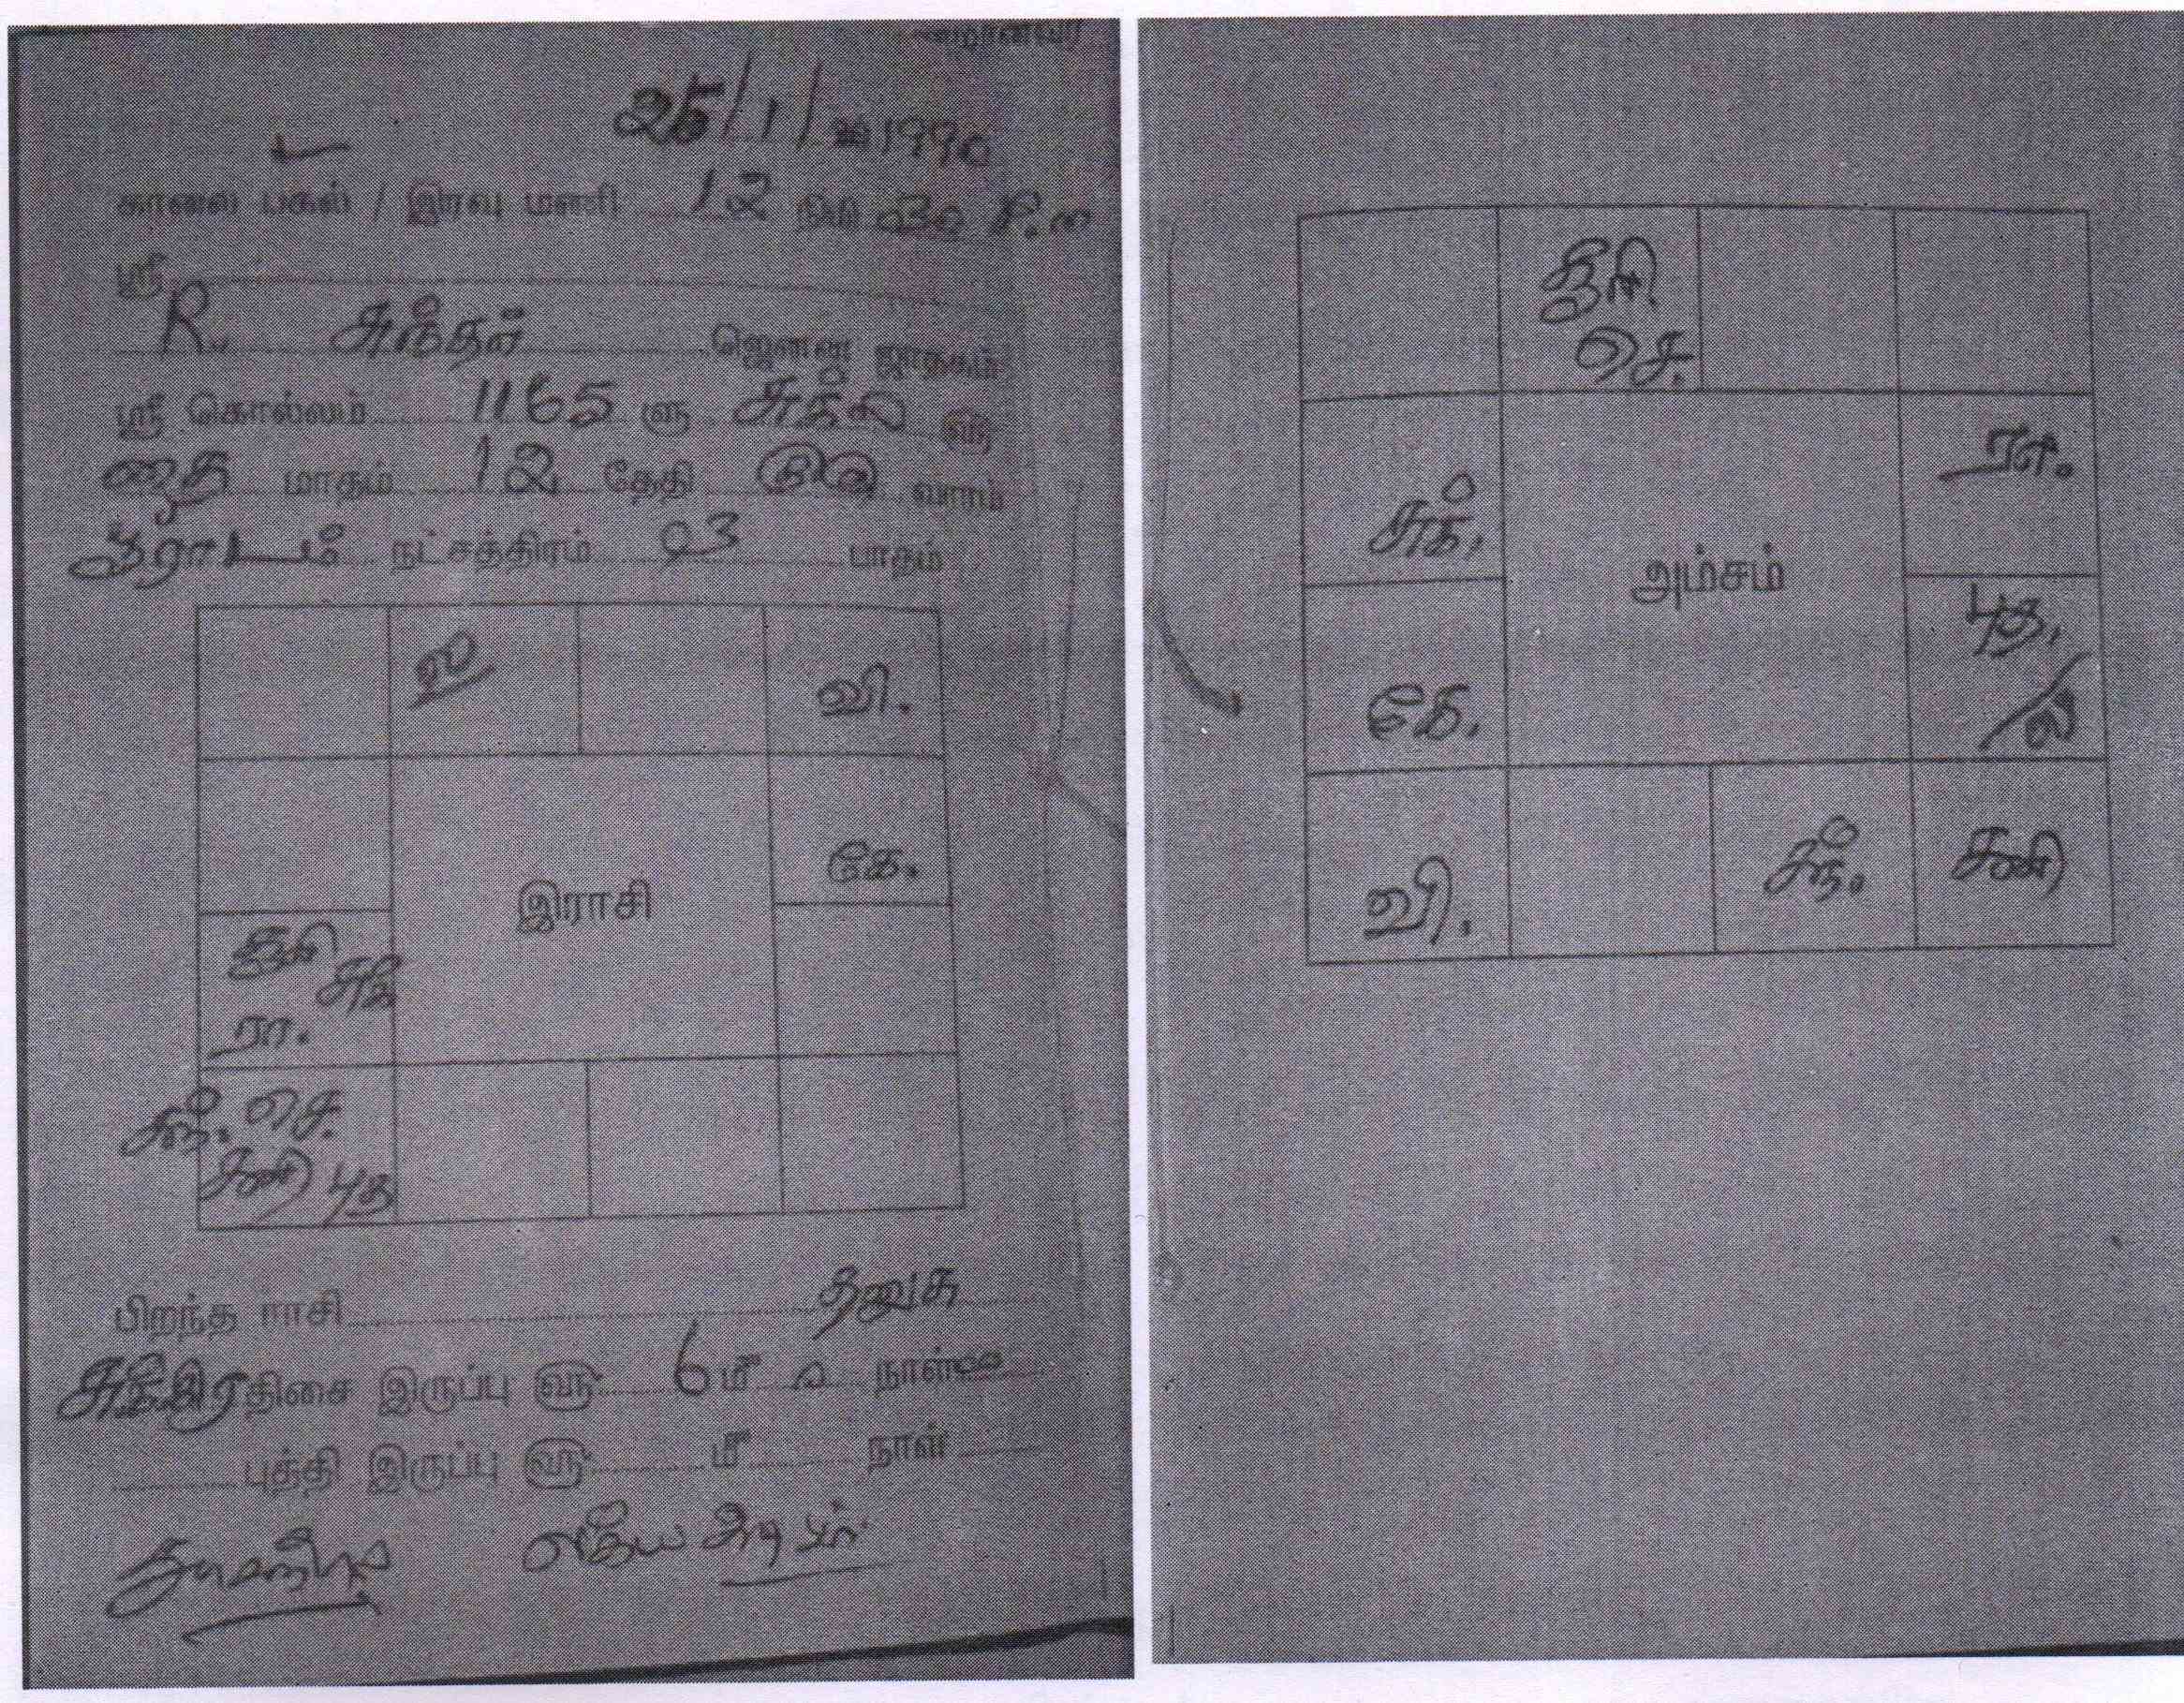 25/1/1990
காலை பகல் / இரவு மணி 12 நிமி 30 P.m
ஸ்ரீ
R. சுந்தர் ஜெனன ஜாதகம்
ஸ்ரீ கொல்லம் 1165 ளு சுக்ல வரு
தை மாதம் 12 தேதி வாரம்
பூராடம் நட்சத்திரம் 03 பாதம்
ல வி.
கே.
இராசி
சூரி சுக்
ரா.
சந். செ.
சனி புத
பிறந்த ராசி தனுசு
சுக்கிர திசை இருப்பு வரு 6 மீ நாள்
புத்தி இருப்பு வரு மீ நாள்
சூரி.
செ.
ரா.
சுக்.
அம்சம்
புத.
ல
கே.
வி. சந். சனி